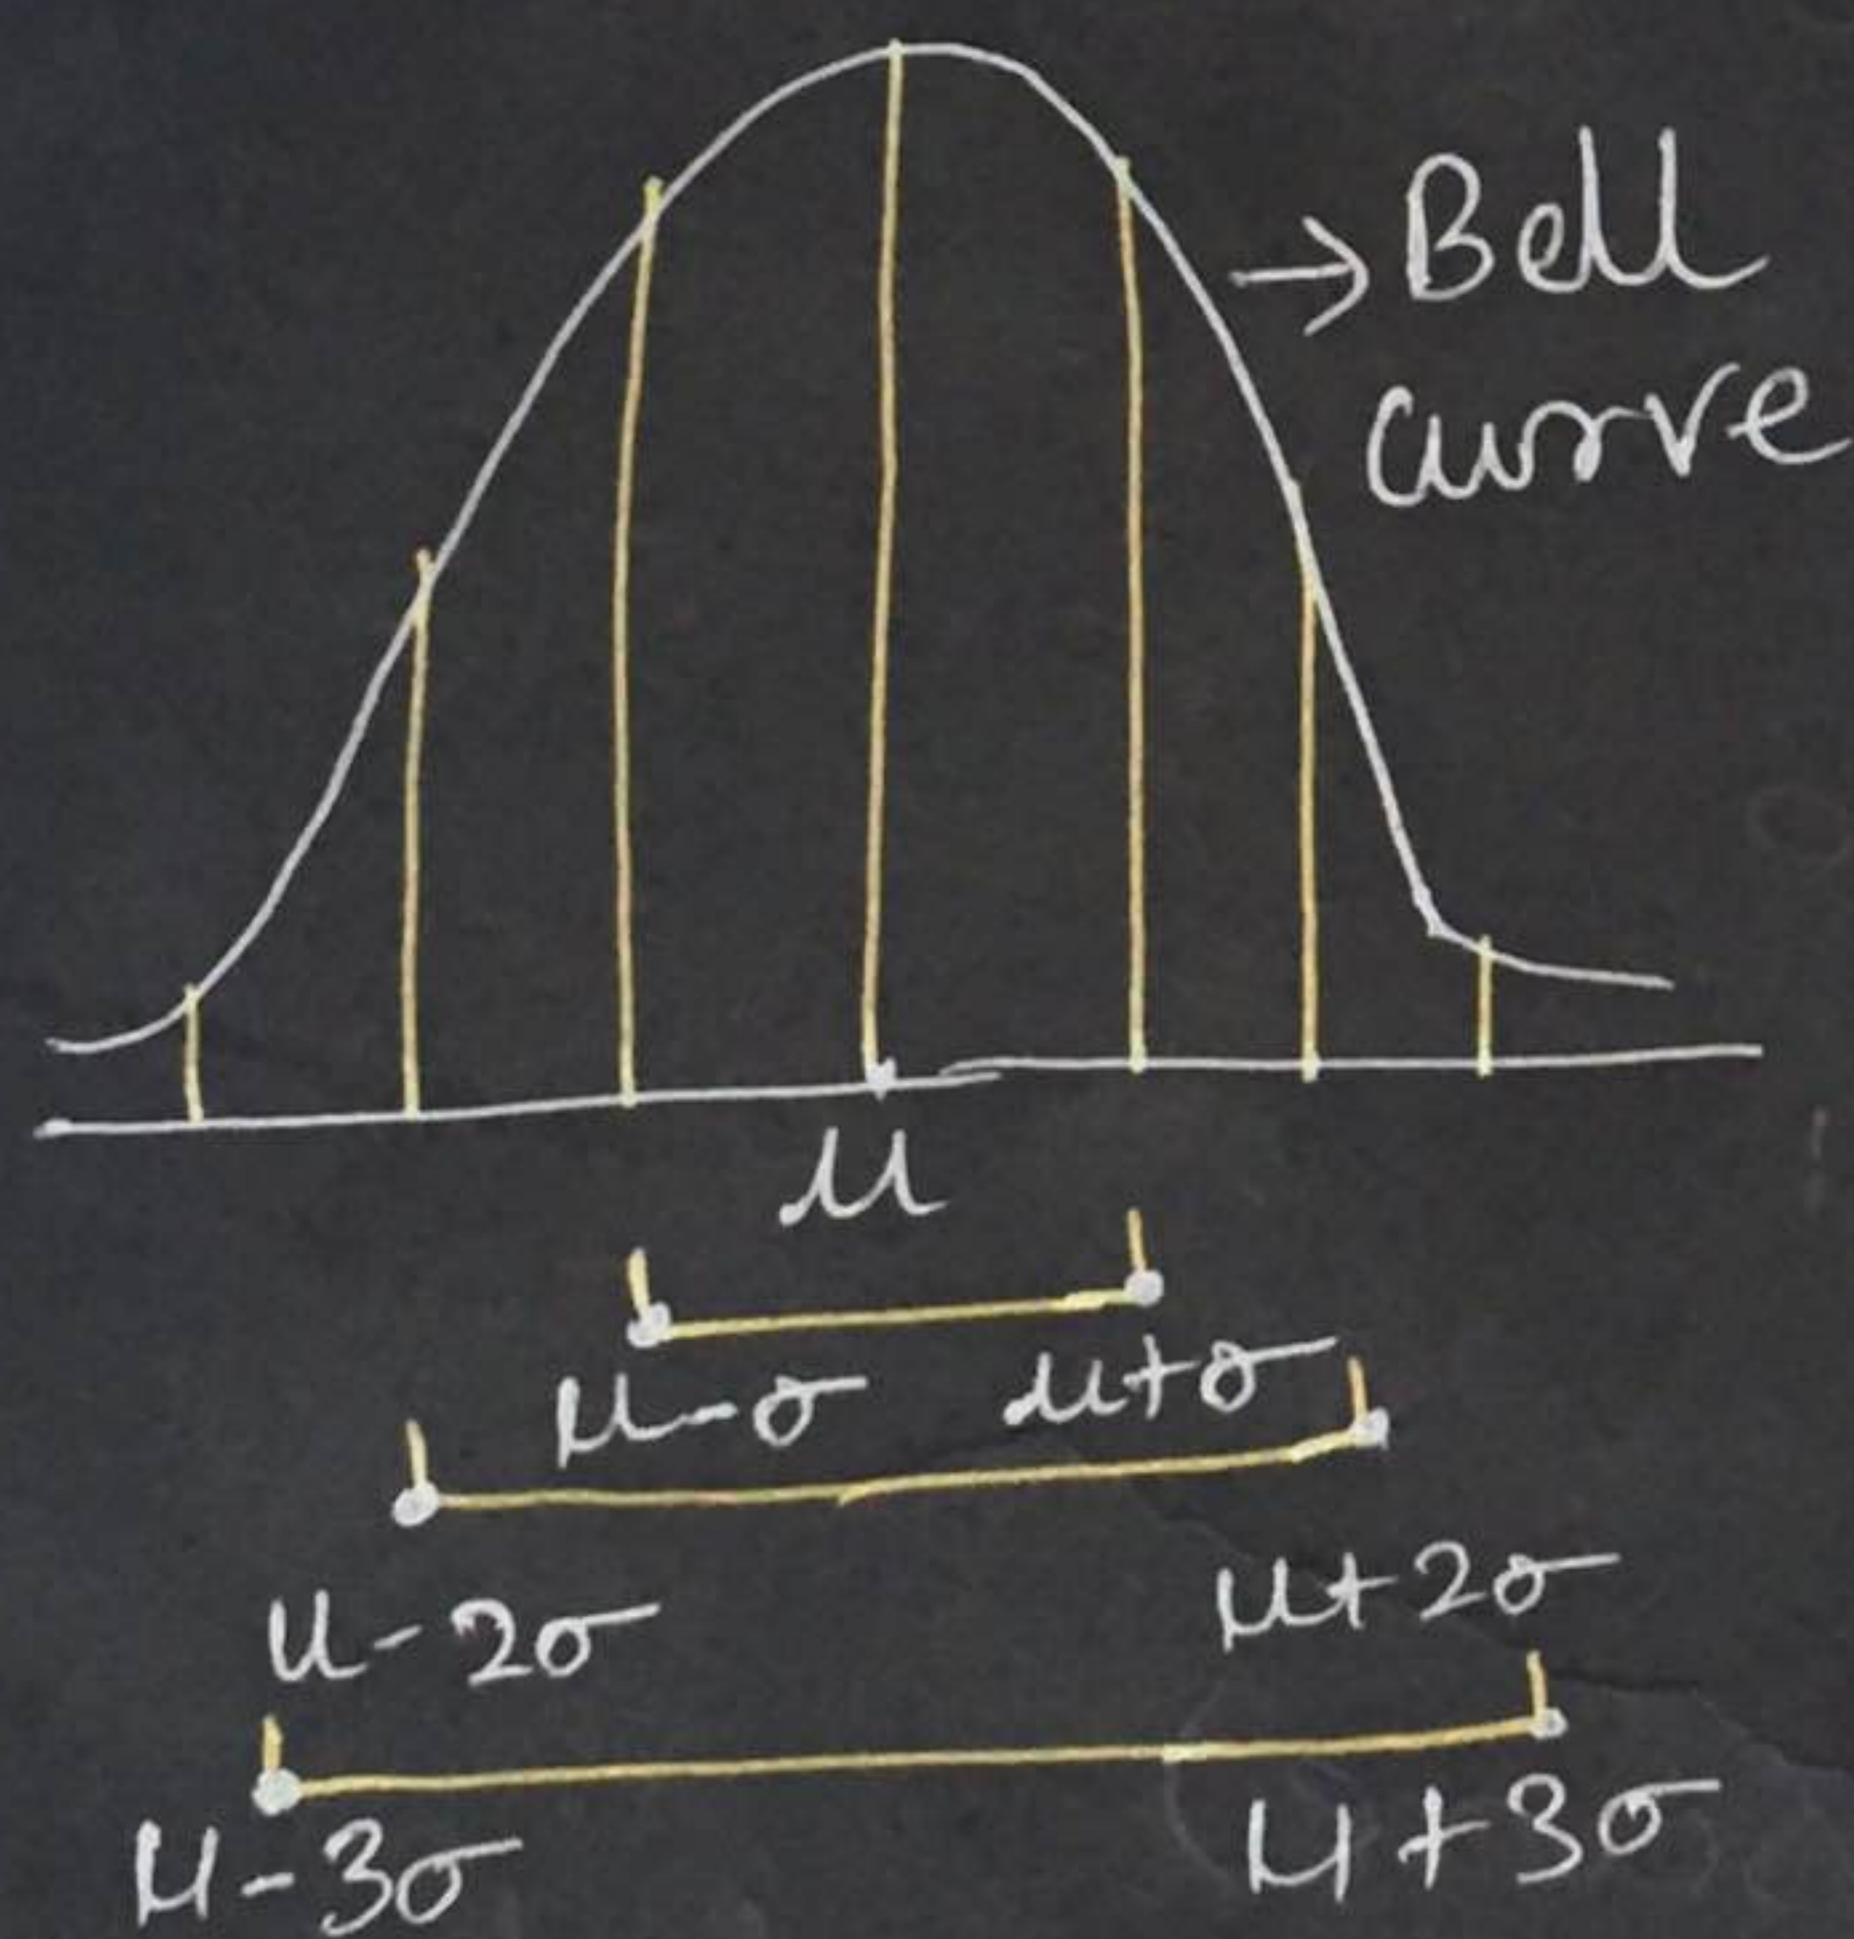 → Bell
curve
μ
μ-σ μ+σ
μ-2σ μ+2σ
μ-3σ μ+3σ